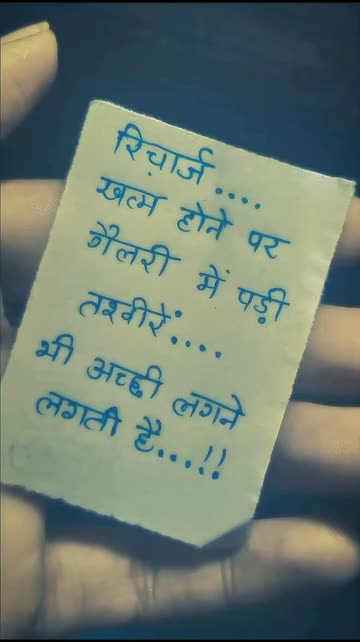 रिचार्ज....
खत्म होने पर
गैलरी में पड़ी
तश्वीरें....
भी अच्छी लगने
लगती है...!!